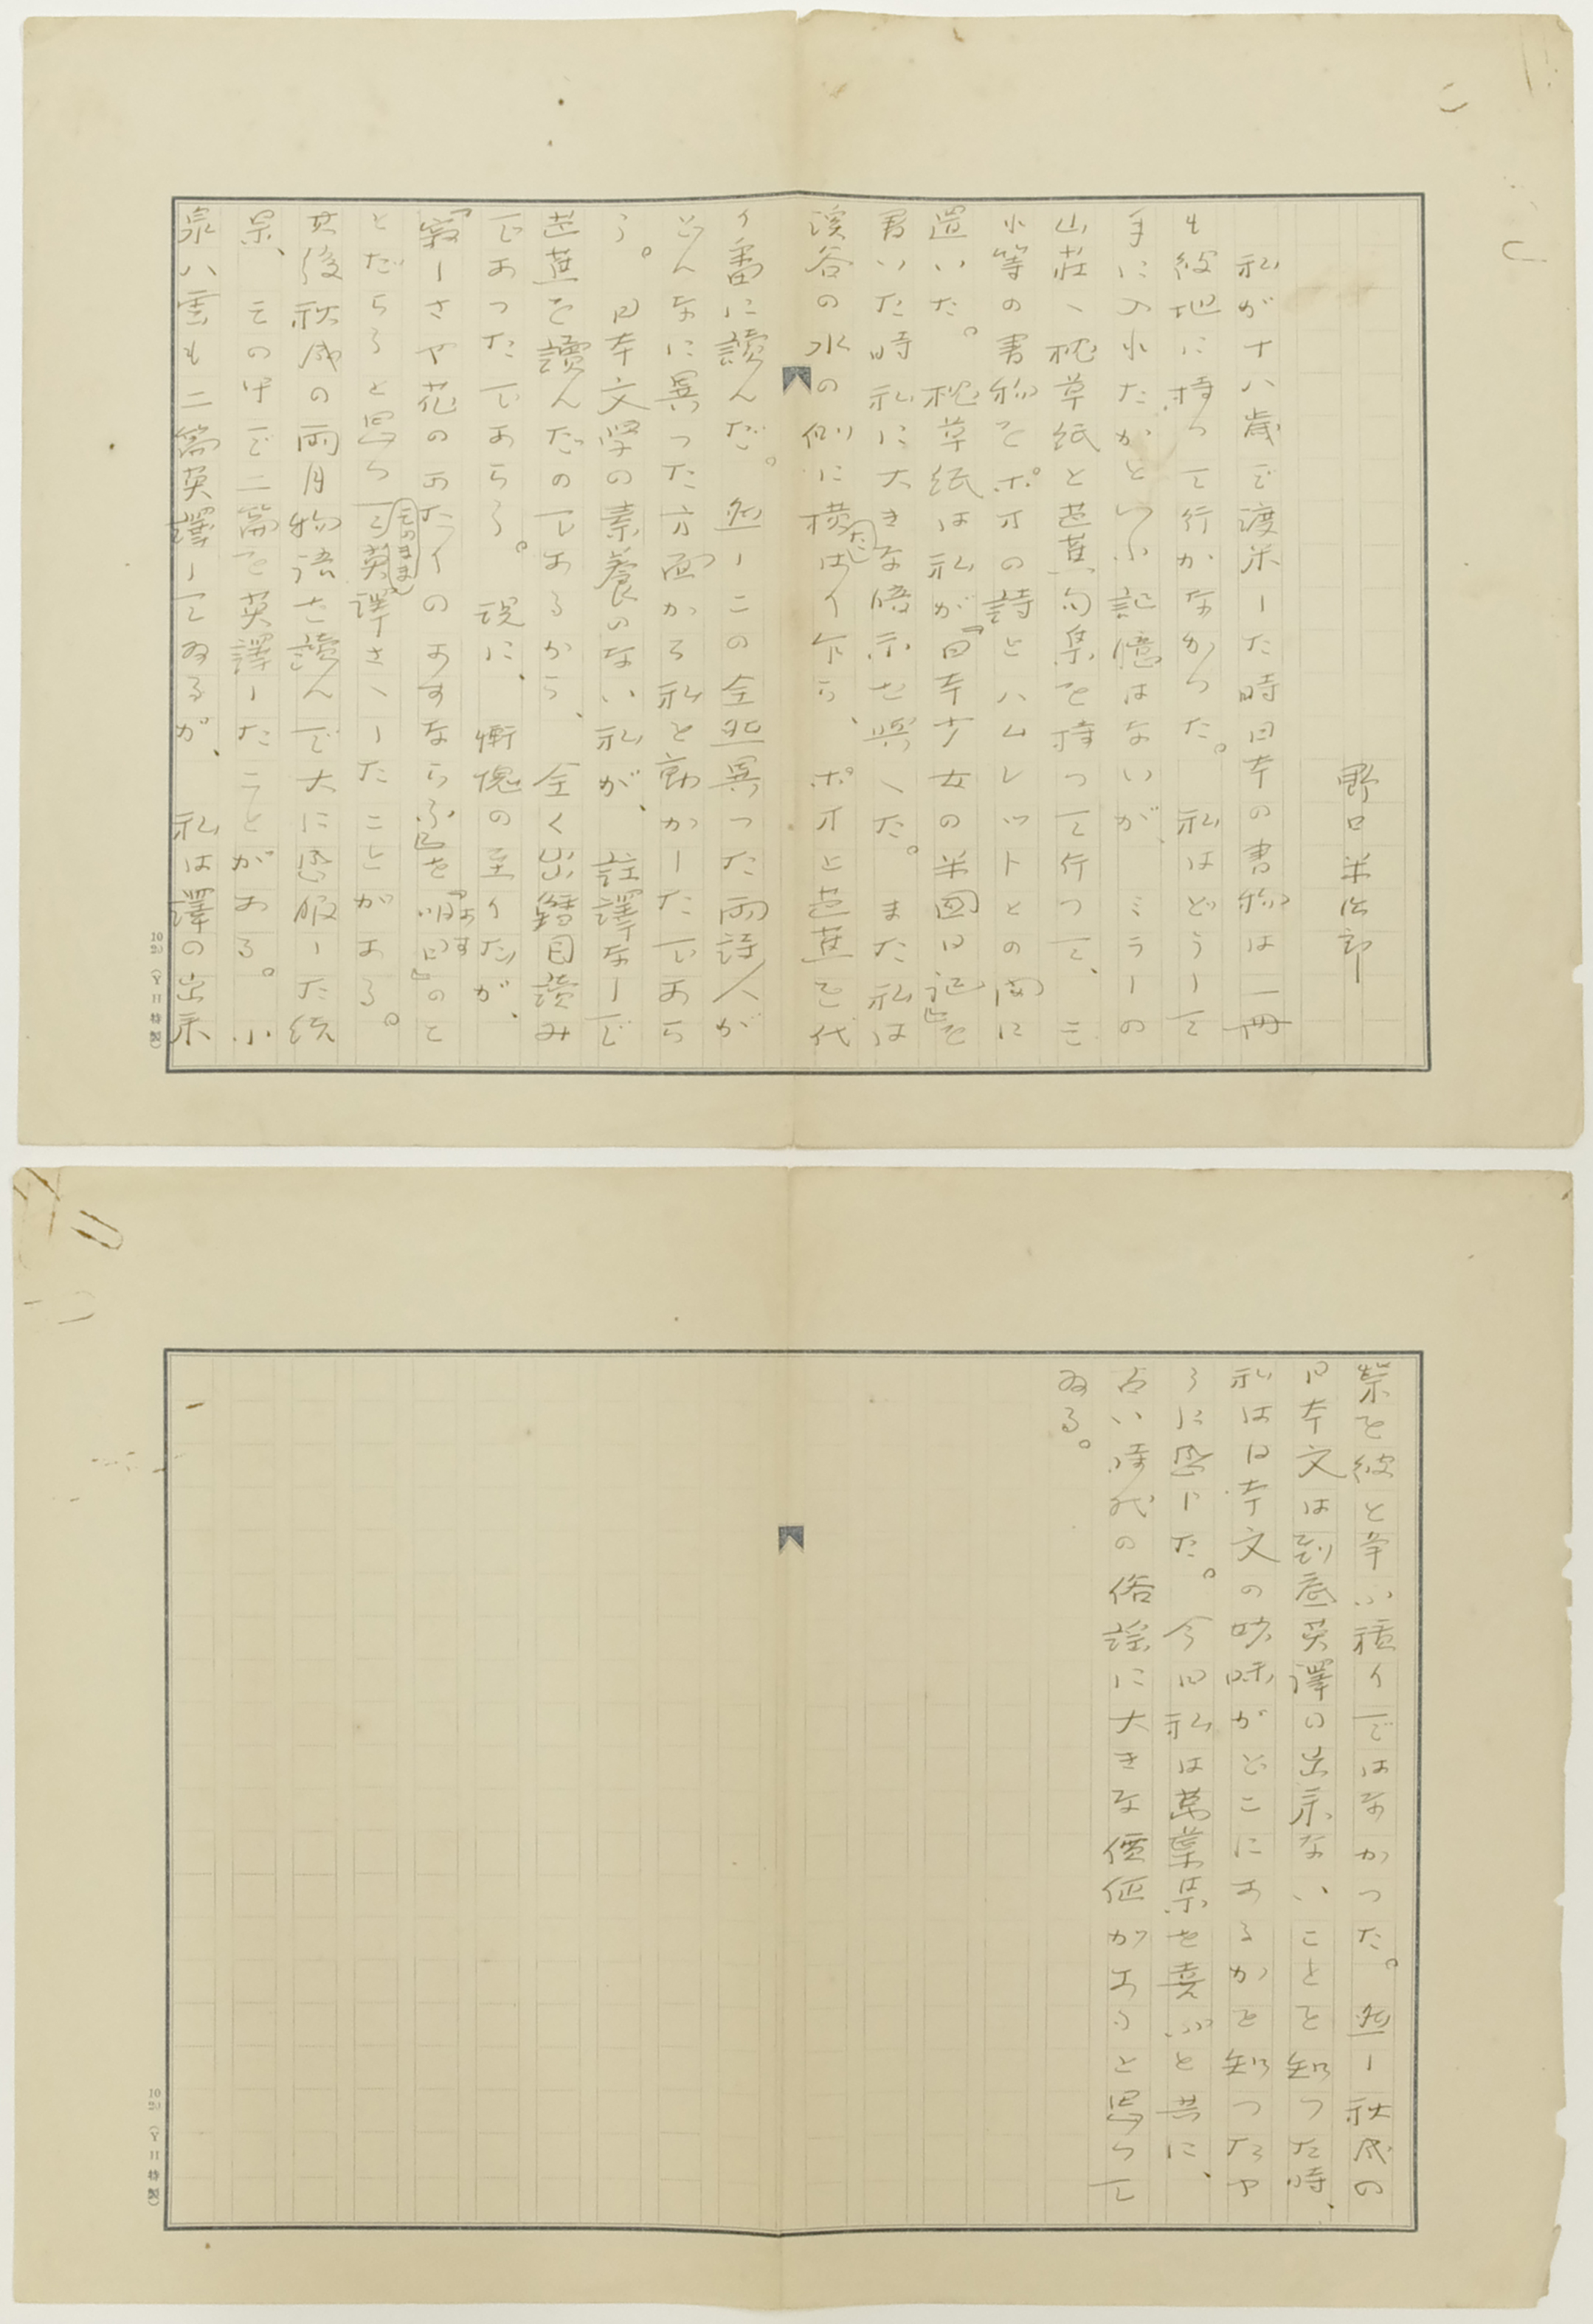 野口米次郎
私が十八歳で渡米した時日本の書物は一冊
も彼地に持つて行かなかつた。私はどうして
手に入れたかといふ記憶はないが、ミラーの
山荘へ枕草紙と芭蕉句集を持つて行つて、そ
れ等の書物をポオの詩とハムレットとの間に
置いた。枕草紙は私が『日本少女の米国日記』を
書いた時私に大きな暗示を與へた。また私は
渓谷の水の側に横はり乍ら、ポオと芭蕉を代
たし
り番に讀んだ。然しこの全然異つた両詩人が
どんなに異つた方面から私を動かしたであら
う。日本文学の素養のない私が、註譯なしで
芭蕉を讀んだのであるから、全く出鱈目讀み
であつたであらう。現に、慚愧の至りだが、
『寂しさや花のあたりのあすならふ』を『明日』のこ
あす
とだらうと思つて英譯さへしたことがある。
そのまま
其後秋成の雨月物語を讀んで大に感服した結
果、その中で二篇を英譯したことがある。小
泉八雲も二篇英譯してゐるが、私は譯の出來
10 20 (Y II 特製)
榮を彼と爭ふ積りではなかつた。然し秋成の
日本文は到底英譯の出來ないことを知つた時、
私は日本文の妙味がどこにあるかを知つたや
うに感じた。今日私は萬葉集を喜ぶと共に、
古い時代の俗謡に大きな價値があると思つて
ゐる。
10 20 (Y II 特製)